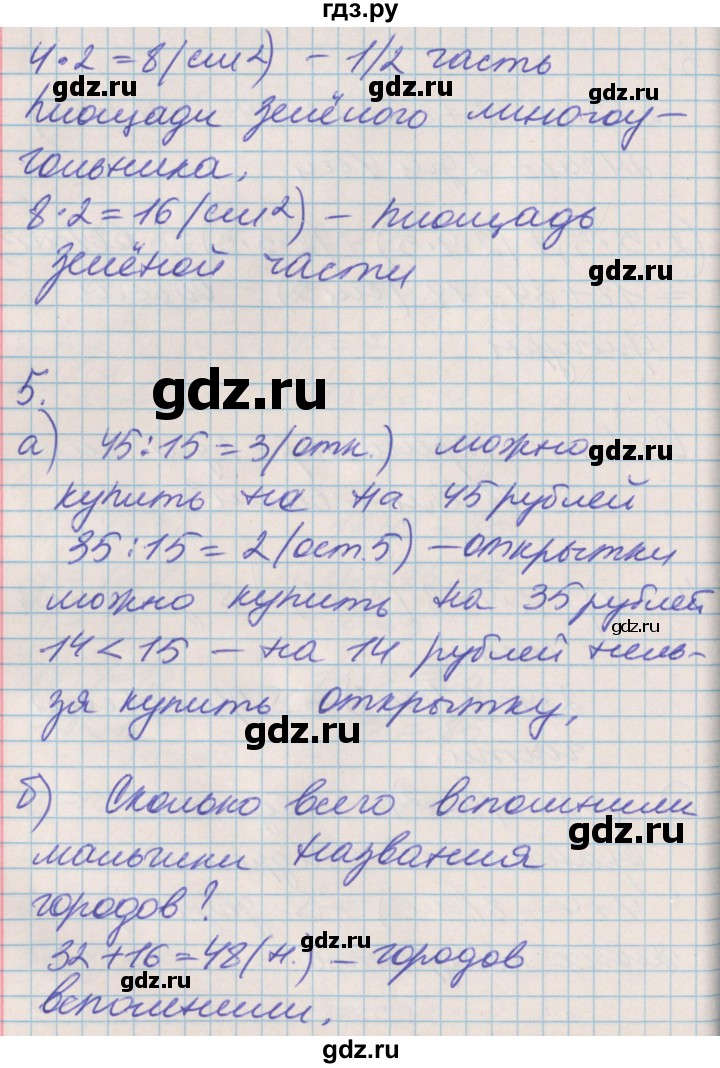 гдз.ру
4·2=8(см2) – 1/2 часть
площади зелёного многоу-
гольника.
8·2=16(см2) – площадь
зелёной части
gdz.ru
gdz.ru
gdz.ru
gdz.ru
5.
gdz.ru
а) 45:15=3(отк.) можно
gdz.ru
купить на на 45 рублей
35:15=2(ост.5) – открытки
можно купить на 35 рублей
gdz.ru
14<15 – на 14 рублей нель-
зя купить открытку.
gdz.ru
б) Сколько всего вспомнили
gdz.ru
мальчики названия
городов?
32+16=48(н.) – городов
gdz.ru
вспомнили.
gdz.ru
gdz.ru